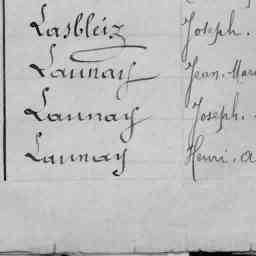 Lasbleiz Joseph.
Launay Jean. Mar
Launay Joseph.
Launay Henri. a